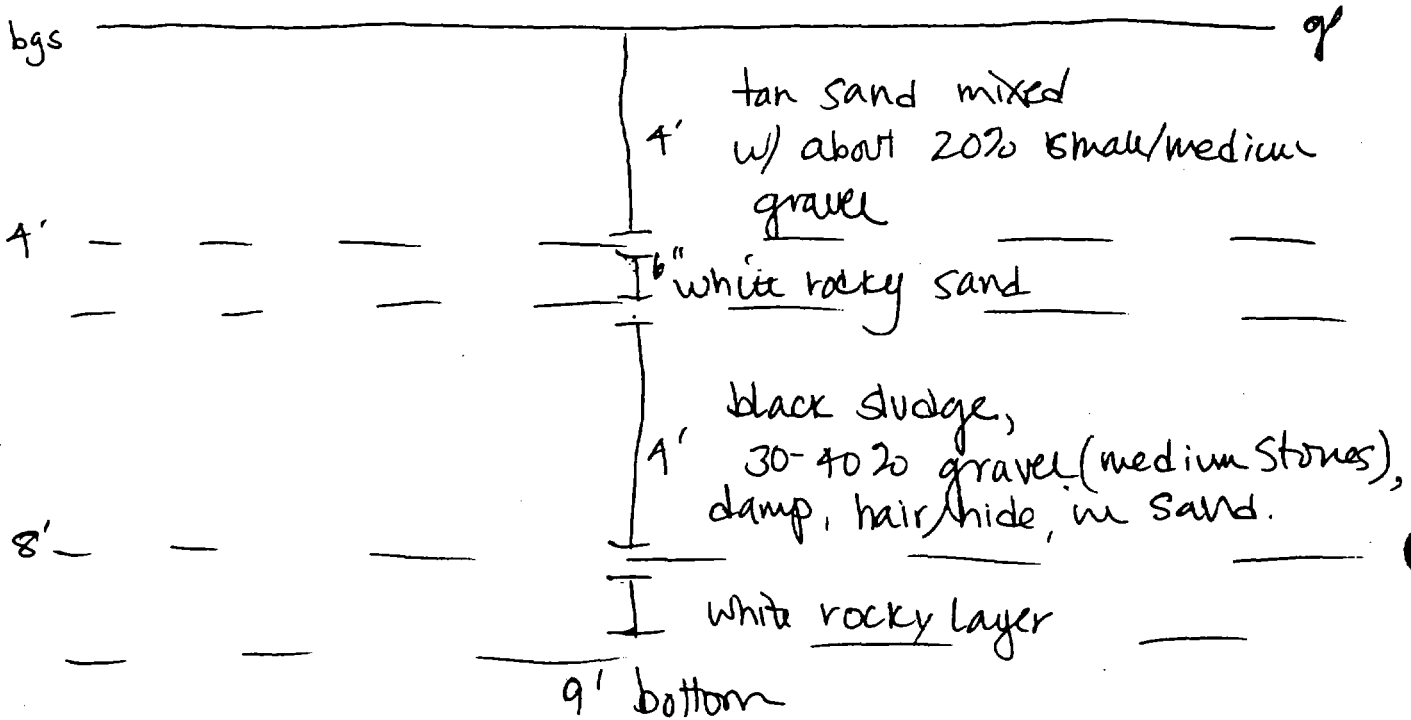 bgs
tan sand mixed
4' w/ about 20% small/medium
gravel
4'
6" white rocky sand
black sludge,
4' 30-40% gravel (medium stones),
damp, hair/hide, in sand.
8'
white rocky layer
9' bottom